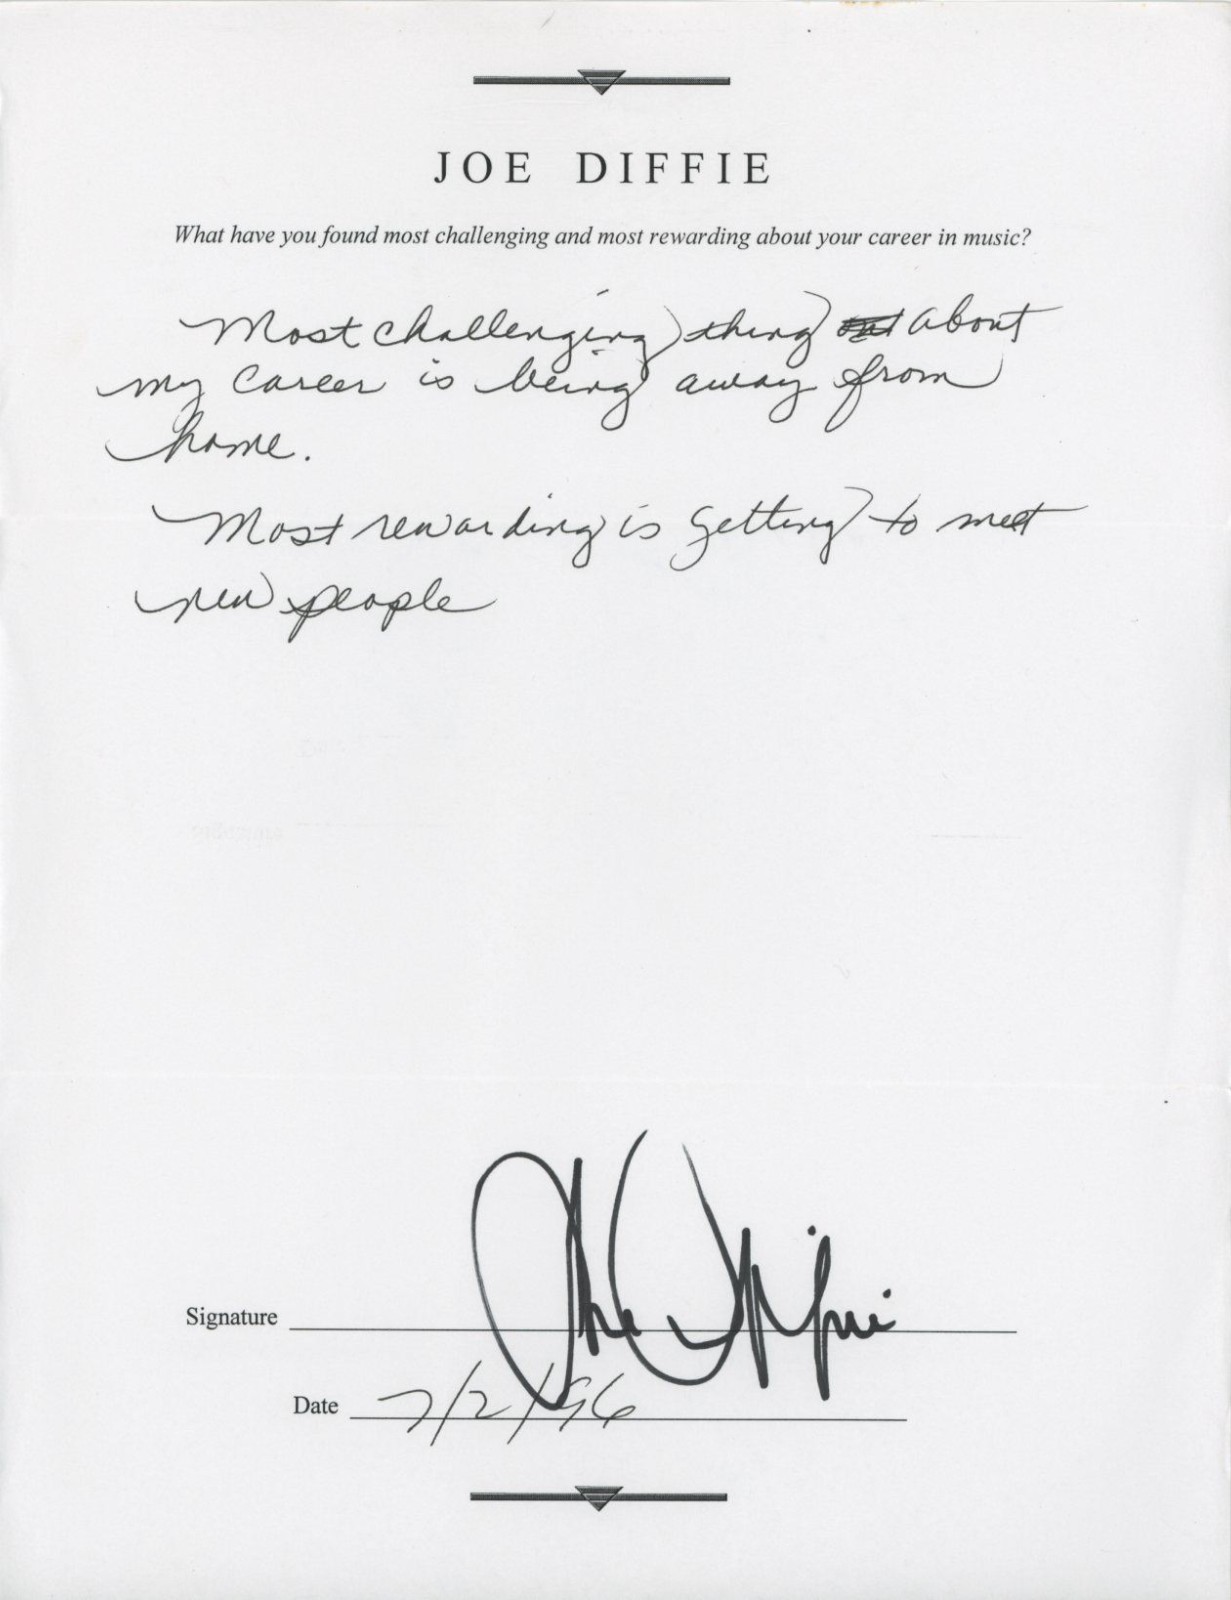 JOE DIFFIE
What have you found most challenging and most rewarding about your career in music?
Most challenging thing about
my career is being away from
home.
Most rewarding is getting to meet
new people
Signature Joe Diffie
Date 7/2/96